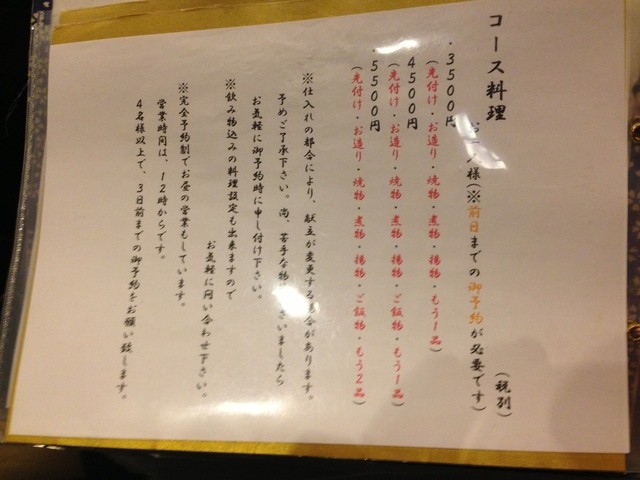 コース料理
(税別)
お一人様(※前日までの御予約が必要です)
・3500円
(先付け・お造り・焼物・煮物・揚物・もう1品)
・4500円
(先付け・お造り・焼物・煮物・揚物・ご飯物・もう1品)
・5500円
(先付け・お造り・焼物・煮物・揚物・ご飯物・もう2品)
※仕入れの都合により、献立が変更する場合があります。
予めご了承下さい。尚、苦手な物がございましたら
お気軽に御予約時に申し付け下さい。
※飲み物込みの料理設定も出来ますので
お気軽に問い合わせ下さい。
※完全予約制でお昼の営業もしています。
営業時間は、12時からです。
4名様以上で、3日前までの御予約をお願い致します。